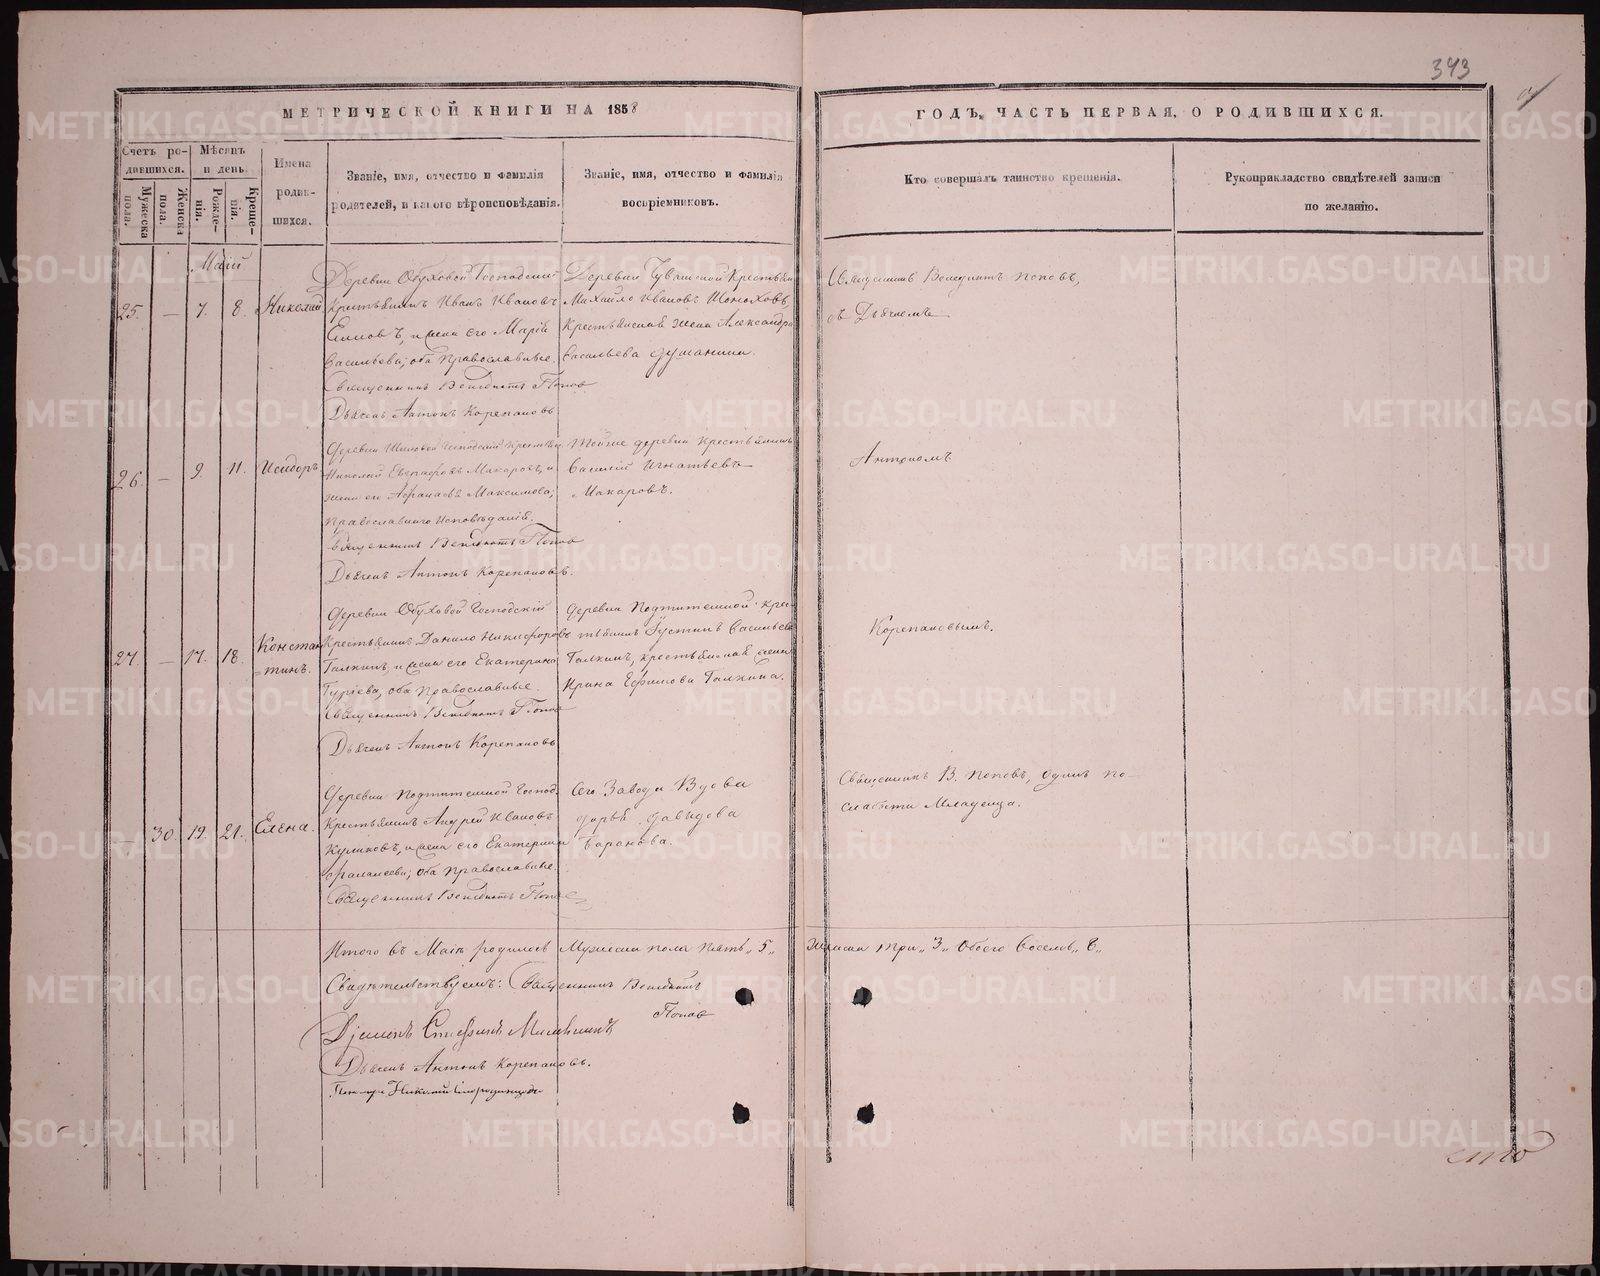 343
МЕТРИЧЕСКОЙ КНИГИ НА 1858
ГОДЪ, ЧАСТЬ ПЕРВАЯ, О РОДИВШИХСЯ.
Счетъ родившихся.
Мужеска пола.
Женска пола.
Мѣсяцъ и день.
Рожденія.
Крещенія.
Имена родившихся.
Званіе, имя, отчество и фамилія
родителей, и какого вѣроисповѣданія.
Званіе, имя, отчество и фамилія
воспріемниковъ.
Кто совершалъ таинство крещенія.
Рукоприкладство свидѣтелей записи
по желанію.
Маій
25. — 7. 8. Николай
Деревни Обуховой Господскій
Крестьянинъ Иванъ Ивановъ
и жена его Марія
Васильева, оба Православные.
Священникъ Венедиктъ Поповъ
Дьячекъ Антонъ Корепановъ
Деревни Крестьянинъ
Михайло Ивановъ
Крестьянская жена Александра
Васильева
Священникъ Венедиктъ Поповъ,
съ Дьячкомъ
26. — 9. 11. Исидоръ
Деревни Господскій Крестьянинъ
Николай Евграфовъ Макаровъ, и
жена его Максимова;
Православнаго Исповѣданія.
Священникъ Венедиктъ Поповъ
Дьячекъ Антонъ Корепановъ.
Тойже деревни крестьянинъ
Василій Игнатьевъ
Макаровъ.
Антономъ
27. — 17. 18. Констан-
тинъ.
Деревни Обуховой Господскій
Крестьянинъ Данило Никифоровъ
Галкинъ, и жена его Екатерина
Гуріева, оба Православные.
Священникъ Венедиктъ Поповъ
Дьячекъ Антонъ Корепановъ
Деревни крес-
тьянинъ Густинъ Васильевъ
Галкинъ, крестьянская жена
Ирина Ефимова Галкина.
Корепановымъ.
— 30. 19. 21. Елена.
Деревни Господ.
Крестьянинъ Андрей Ивановъ
Куликовъ, и жена его Екатерина
оба Православные.
Священникъ Венедиктъ Поповъ
Сего Завода Вдова
Дарья Давыдова
Баранова.
Священникъ В. Поповъ, одинъ по
слабости Младенца.
Итого въ Маіѣ родилось Мужеска пола Пять „5„ Женска три „3„ Обоего Восемь „8„
Свидѣтельствуемъ: Священникъ Венедиктъ
Поповъ
Діаконъ
Дьячекъ Антонъ Корепановъ.
Николай
METRIKI.GASO-URAL.RU